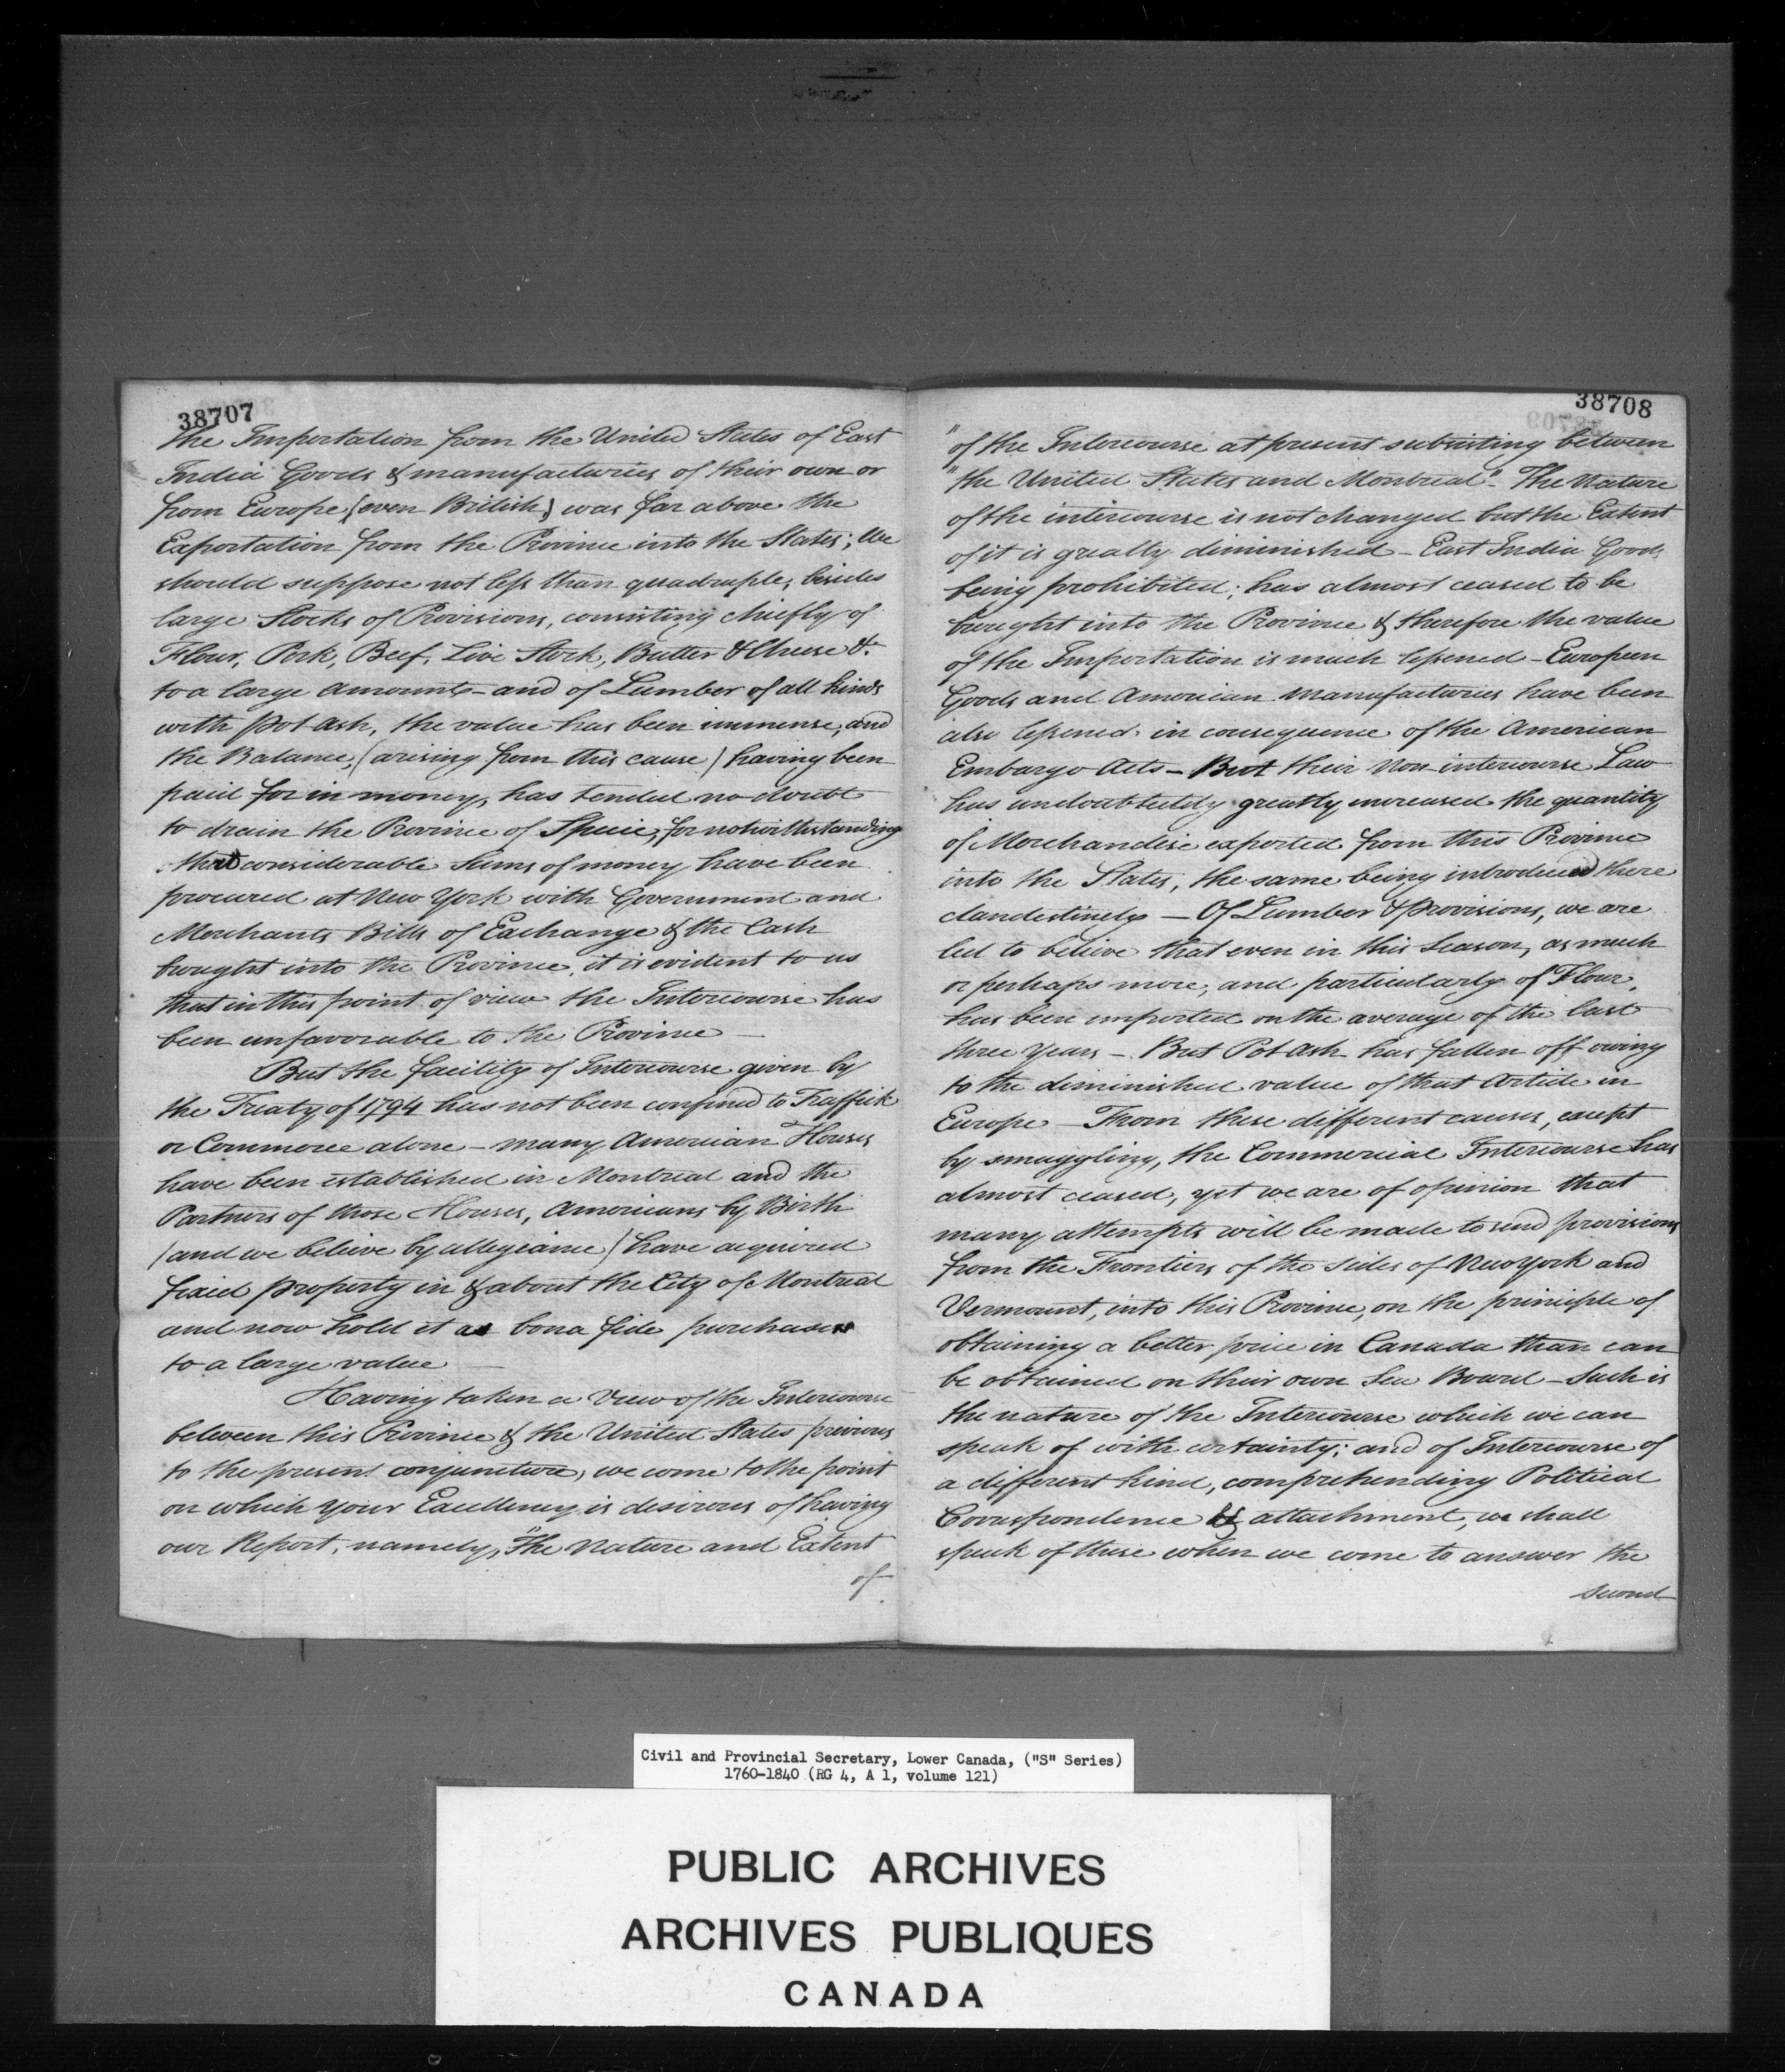 38707
the Importation from the United States of East
India Goods & manufacturies of their own or
from Europe (even British) was far above the
Exportation from the Province into the States; We
should suppose not less than quadruple; besides
large Stocks of Provisions, consisting chiefly of
Flour, Pork, Beef, Live Stock, Butter & Cheese &c
to a large amount - and of Lumber of all kinds
with pot ash, the value has been immense, and
the Balance, (arising from this cause) having been
paid for in money, has tended no doubt
to drain the Province of Specie, for notwithstanding
that considerable Sums of money have been
procured at New York with Government and
Merchants Bills of Exchange & the Cash
brought into the Province, it is evident to us
that in this point of view the Intercourse has
been unfavorable to the Province —
But the facility of Intercourse given by
the Treaty of 1794 has not been confined to Traffick
or Commerce alone - many American Houses
have been established in Montreal and the
Partners of those Houses, Americans by Birth
(and we believe by allegiance) have acquired
fixed property in & about the City of Montreal
and now hold it as bona fide purchasers
to a large value —
Having taken a View of the Intercourse
between this Province & the United States previous
to the present conjuncture, we come to the point
on which your Excellency is desirous of having
our Report, namely, "The Nature and Extent
of
38708
"of the Intercourse at present subsisting between
"the United States and Montreal". The Nature
of the intercourse is not changed but the Extent
of it is greatly diminished - East India Goods
being prohibited; has almost ceased to be
brought into the Province & therefore the value
of the Importation is much lessened - European
Goods and American manufacturies have been
also lessened in consequence of the American
Embargo Acts - But their Non intercourse Law
has undoubtedly greatly increased the quantity
of Merchandise exported from this Province
into the States, the same being introduced there
clandestinely — Of Lumber & provisions, we are
led to believe that even in this Season, as much
or perhaps more, and particularly of Flour,
has been imported on the average of the last
three Years - But Pot Ash has fallen off owing
to the diminished value of that Article in
Europe - From these different causes, except
by smuggling, the Commercial Intercourse has
almost ceased, yet we are of opinion that
many attempts will be made to send provisions
from the Frontiers of the sides of New York and
Vermount, into this Province, on the principle of
obtaining a better price in Canada than can
be obtained on their own Sea Board - Such is
the nature of the Intercourse which we can
speak of with certainty; and of Intercourse of
a different kind, comprehending Political
Correspondence & attachment, we shall
speak of these when we come to answer the
second
Civil and Provincial Secretary, Lower Canada, ("S" Series)
1760-1840 (RG 4, A 1, volume 121)
PUBLIC ARCHIVES
ARCHIVES PUBLIQUES
CANADA